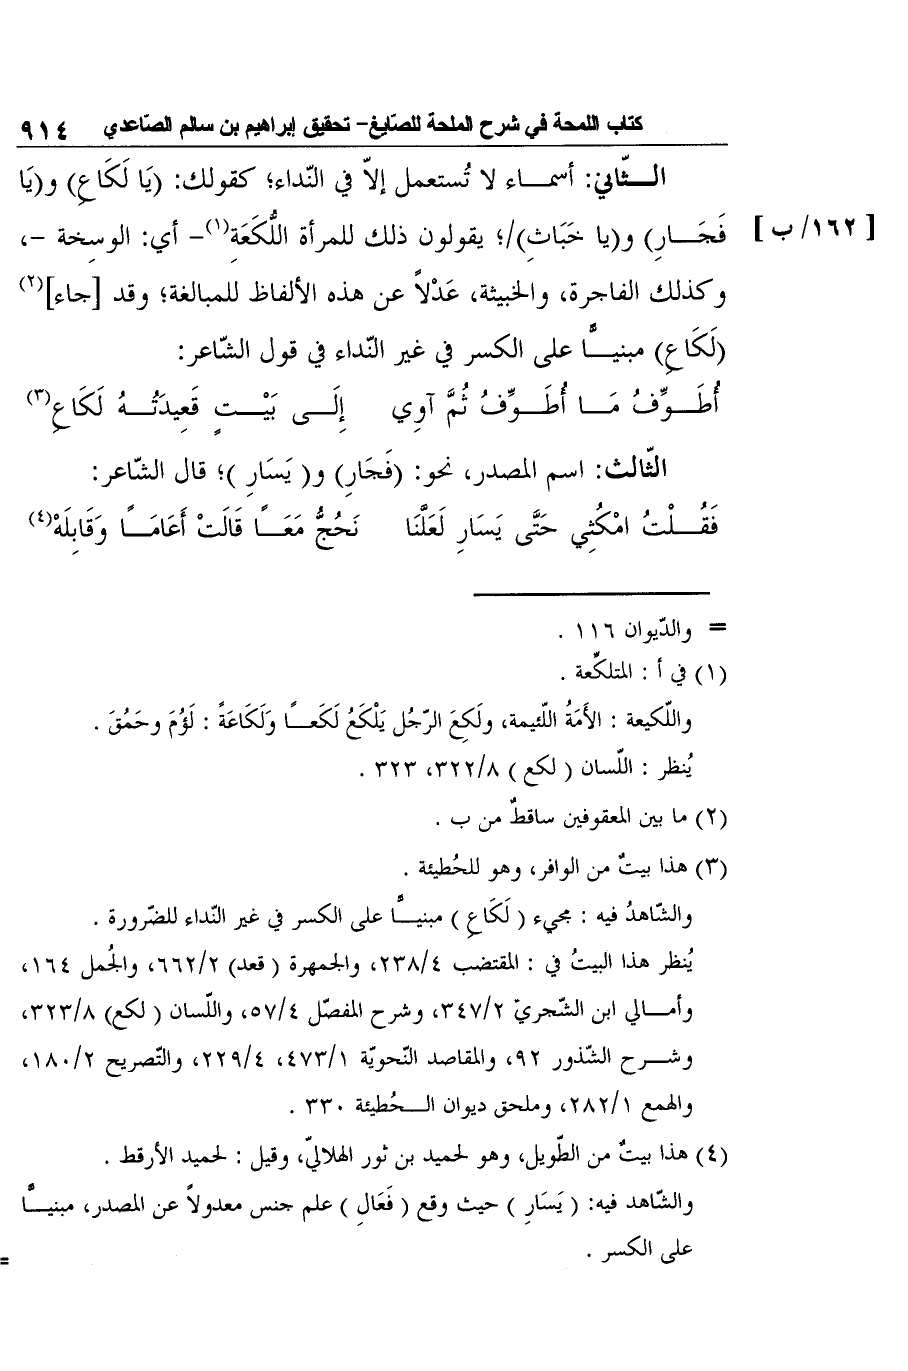 كتاب اللمحة في شرح الملحة للصّايغ- تحقيق إبراهيم بن سالم الصّاعدي ٩١٤
الـــثّاني: أسمـــاء لا تُستعمل إلاّ في النّداء؛ كقولك: (يَا لَكَاعِ) و(يَا
[ ١٦٢/ ب ] فَجَـــارِ) و(يا خَبَاثِ)/؛ يقولون ذلك للمرأة اللُّكَعَة(١)- أي: الوسخة -،
وكذلك الفاجرة، والخبيثة، عَدْلاً عن هذه الألفاظ للمبالغة؛ وقد [جاء](٢)
(لَكَاعِ) مبنيـــًّا على الكسر في غير النّداء في قول الشّاعر:
أُطَـــوِّفُ مَـــا أُطَـــوِّفُ ثُمَّ آوِي إِلَـــى بَيْـــتٍ قَعِيدَتُـــهُ لَكَاعِ(٣)
الثّالث: اسم المصدر، نحو: (فَجَارِ) و( يَسَارِ )؛ قال الشّاعر:
فَقُـــلْتُ امْكُثِي حَتَّى يَسَارِ لَعَلَّنَا نَحُجُّ مَعَـــاً قَالَتْ أَعَامَـــاً وَقَابِلَهْ(٤)
= والدّيوان ١١٦ .
(١) في أ : المتلكِّعة .
واللّكيعة : الأَمَةُ اللّئيمة، ولَكِعَ الرّجُل يَلْكَعُ لَكَعـــًا وَلَكَاعَةً : لَؤُمَ وحَمُقَ .
يُنظر : اللّسان ( لكع ) ٣٢٢/٨، ٣٢٣ .
(٢) ما بين المعقوفين ساقطٌ من ب .
(٣) هذا بيتٌ من الوافر، وهو للحُطيئة .
والشّاهدُ فيه : مجيء ( لَكَاعِ ) مبنيـــًّا على الكسر في غير النّداء للضّرورة .
يُنظر هذا البيتُ في : المقتضب ٢٣٨/٤، والجمهرة ( قعد) ٦٦٢/٢، والجُمل ١٦٤،
وأمـــالي ابن الشّجريّ ٣٤٧/٢، وشرح المفصّل ٥٧/٤، واللّسان ( لكع) ٣٢٣/٨،
وشـــرح الشّذور ٩٢، والمقاصد النّحويّة ٤٧٣/١، ٢٢٩/٤، والتّصريح ١٨٠/٢،
والهمع ٢٨٢/١، وملحق ديوان الـــحُطيئة ٣٣٠ .
(٤) هذا بيتٌ من الطّويل، وهو لحميد بن ثور الهلاليّ، وقيل : لحميد الأرقط .
والشّاهد فيه: ( يَسَارِ ) حيث وقع ( فَعَالِ ) علم جنس معدولاً عن المصدر، مبنيـــًّا
على الكسر .
=